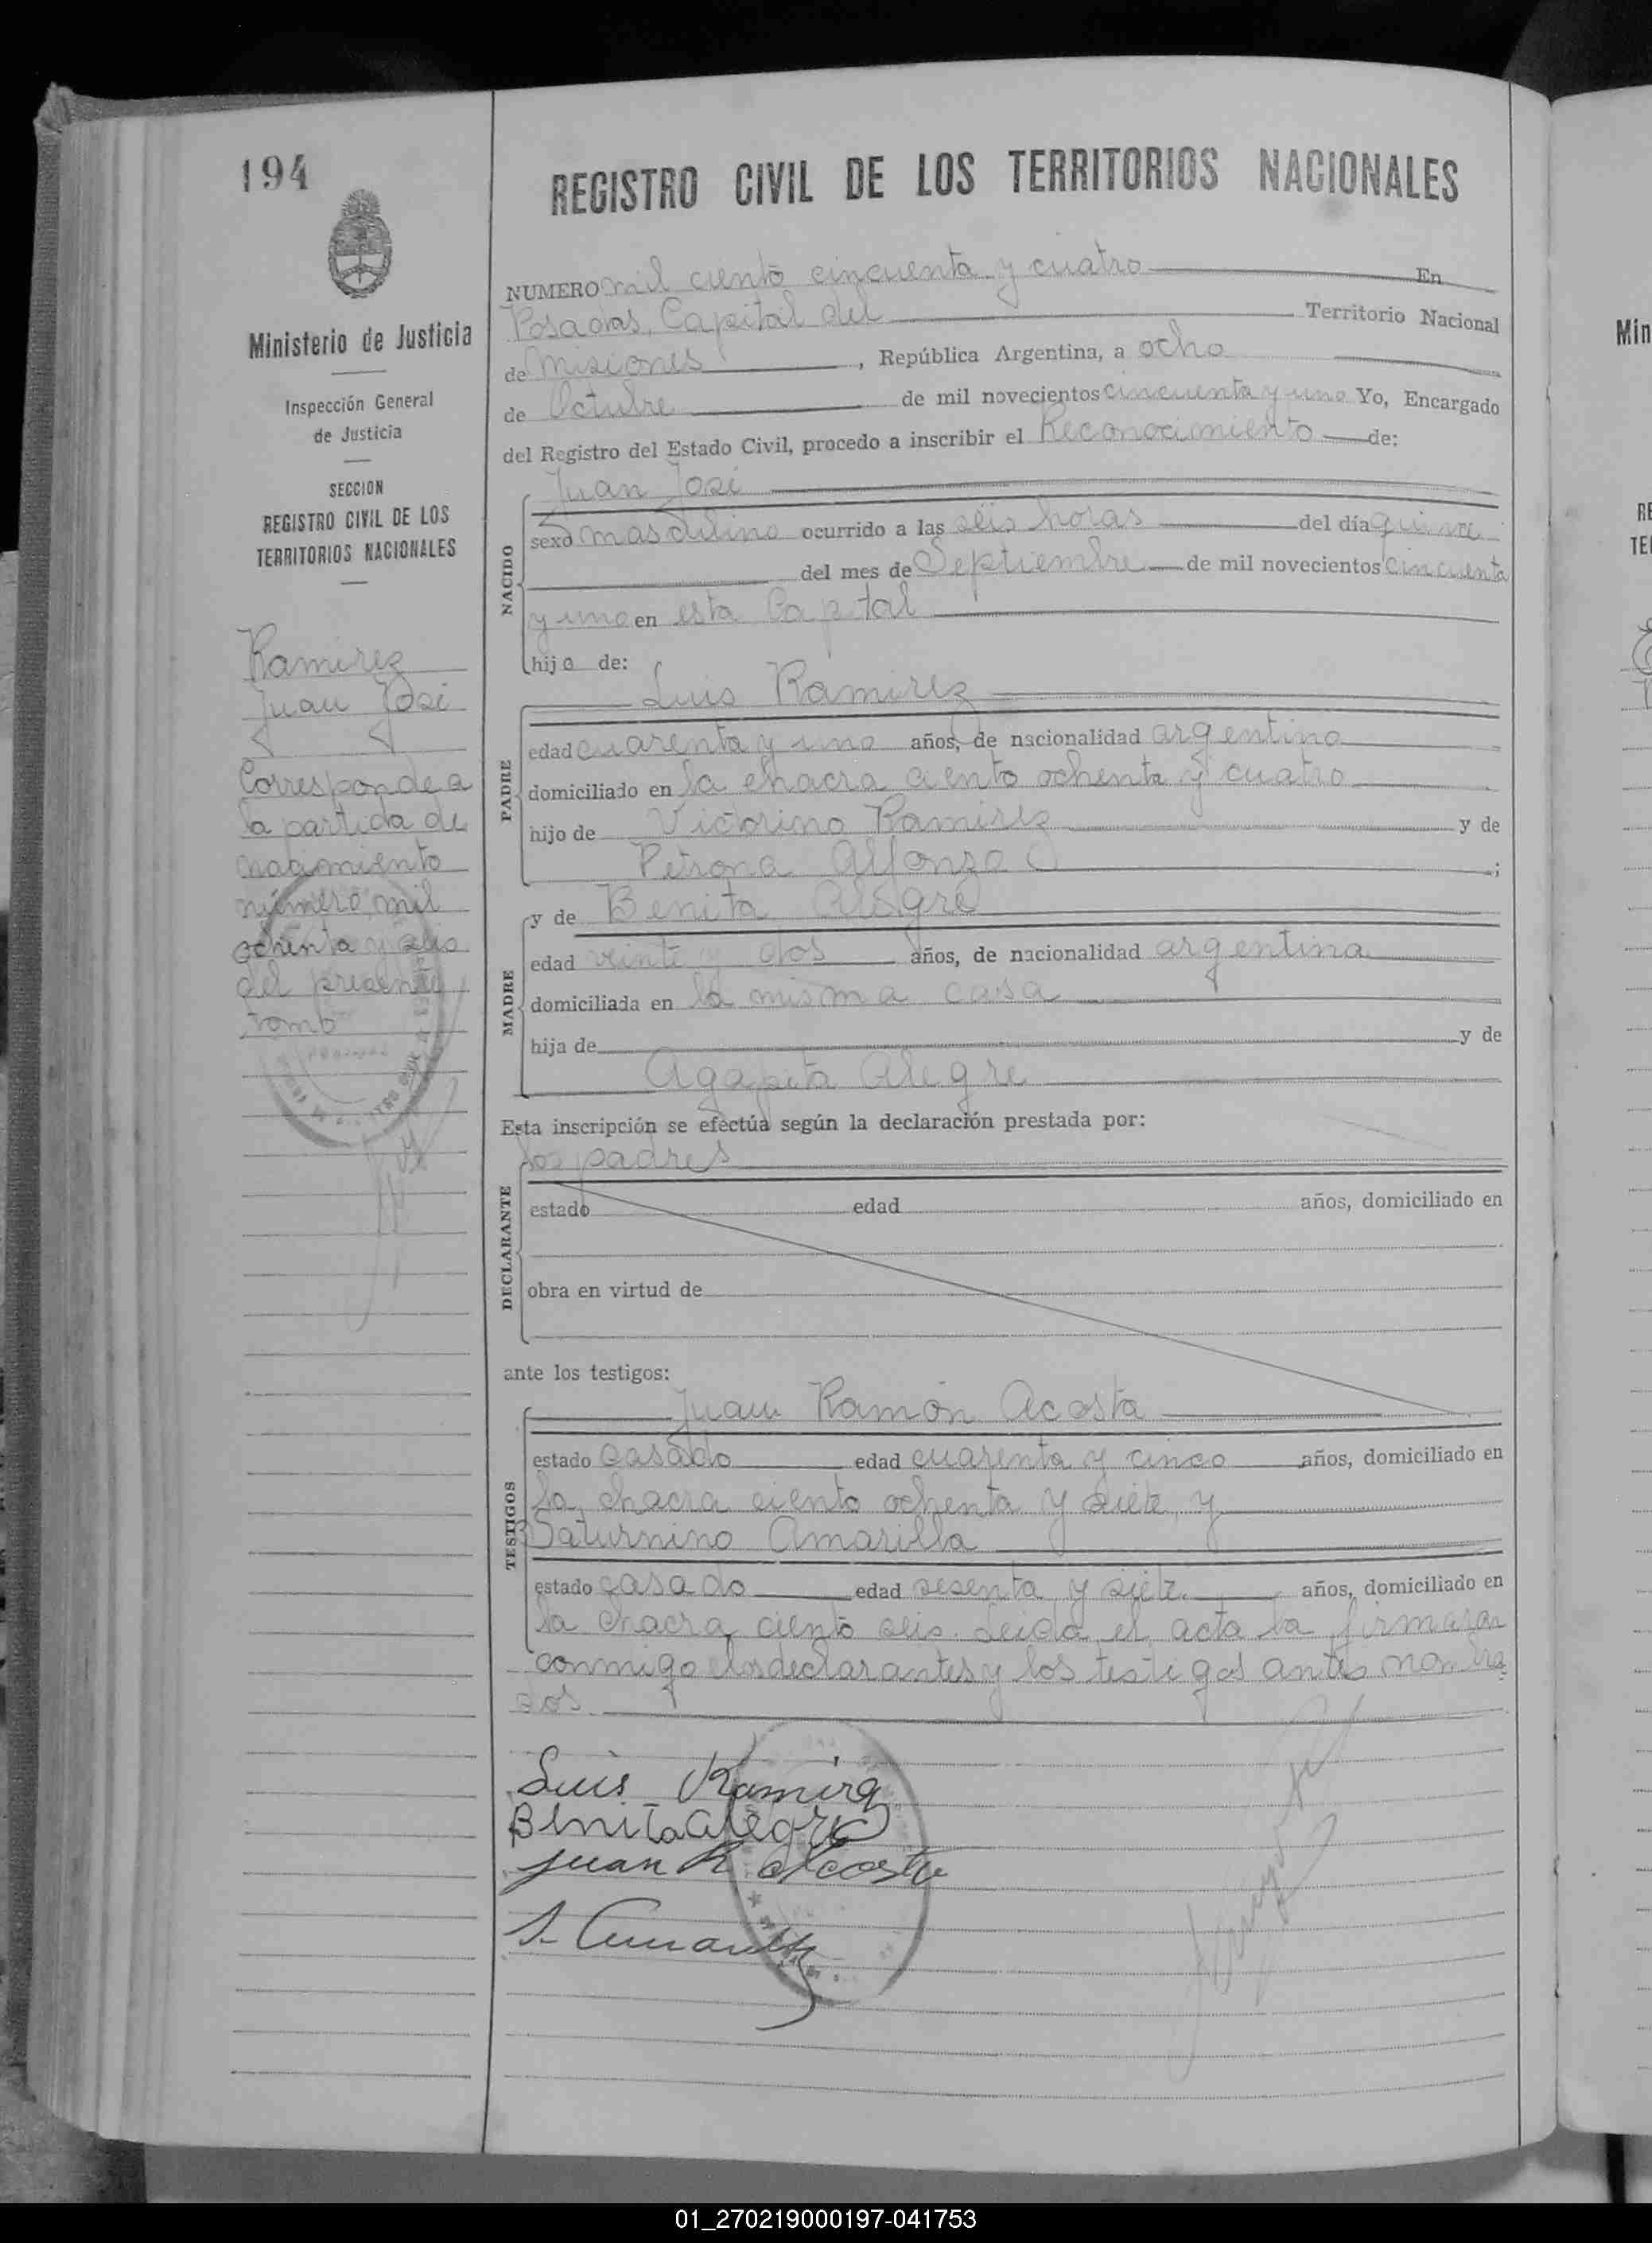 194
REGISTRO CIVIL DE LOS TERRITORIOS NACIONALES
Ministerio de Justicia
Inspección General
de Justicia
SECCION
REGISTRO CIVIL DE LOS
TERRITORIOS NACIONALES
Ramirez
Juan José
Corresponde a
la partida de
nacimiento
número mil
ochenta y seis
del presente
tomo
NUMERO mil ciento cincuenta y cuatro En
Posadas, Capital del Territorio Nacional
de Misiones, República Argentina, a ocho
de Octubre de mil novecientos cincuenta y uno Yo, Encargado
del Registro del Estado Civil, procedo a inscribir el Reconocimiento de:
NACIDO
Juan José
sexo masculino ocurrido a las seis horas del día quince
del mes de Septiembre de mil novecientos cincuenta
y uno en esta Capital
hijo de:
PADRE
Luis Ramirez
edad cuarenta y uno años, de nacionalidad argentino
domiciliado en la chacra ciento ochenta y cuatro
hijo de Victorino Ramirez y de
Petrona Alfonzo;
MADRE
y de Benita Alegre
edad veinte y dos años, de nacionalidad argentina
domiciliada en la misma casa
hija de y de
Agapita Alegre
Esta inscripción se efectúa según la declaración prestada por:
DECLARANTE
los padres
estado edad años, domiciliado en
obra en virtud de
ante los testigos:
TESTIGOS
Juan Ramón Acosta
estado casado edad cuarenta y cinco años, domiciliado en
la chacra ciento ochenta y siete, y
Saturnino Amarilla
estado casado edad sesenta y siete años, domiciliado en
la chacra ciento seis. Leida el acta la firmaron
conmigo los declarantes y los testigos antes nombra
dos.
Luis Ramirez
Benita Alegre
Juan R Acosta
S. Amarilla
Min
01_270219000197-041753